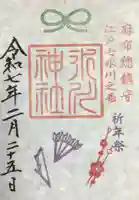 麻布総鎮守
江戸七氷川之一
祈年祭
氷川
神社
令和七年二月二十五日